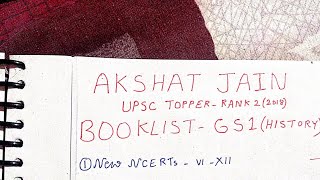 AKSHAT JAIN
UPSC TOPPER - RANK 2 (2018)
BOOKLIST - GS1 (HISTORY)
① New NCERTs - VI - XII